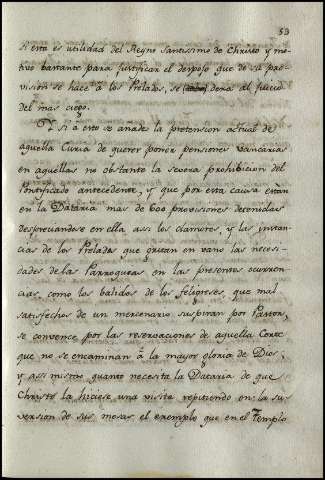 53
Si esta es utilidad del Reyno Santissimo de Christo y mo-
tivo bastante para justificar el despojo que de su pro-
vision se hace à los Prelados, se dexa al juicio
del mas ciego.
Y si a esto se añade la pretension actual de
aquella Curia de querer poner pensiones Vancarias
en aquellas no obstante la severa prohibicion del
Pontificado antecedente, y que por esta causa estan
en la Dataria mas de 600 provisiones detenidas
despreciandose en ella assi los clamores, y las instan-
cias de los Prelados que gritan en vano las necesi-
dades de las Parroquias en las presentes ocurren-
cias, como los balidos de los feligreses, que mal
satisfechos de un mercenario suspiran por Pastor,
se convence por las reservaciones de aquella Corte
que no se encaminan à la mayor gloria de Dios;
y assi mismo quanto necesita la Dataria de que
Christo la hiciese una visita repitiendo en la su-
version de sus mesas el exemplo que en el Templo